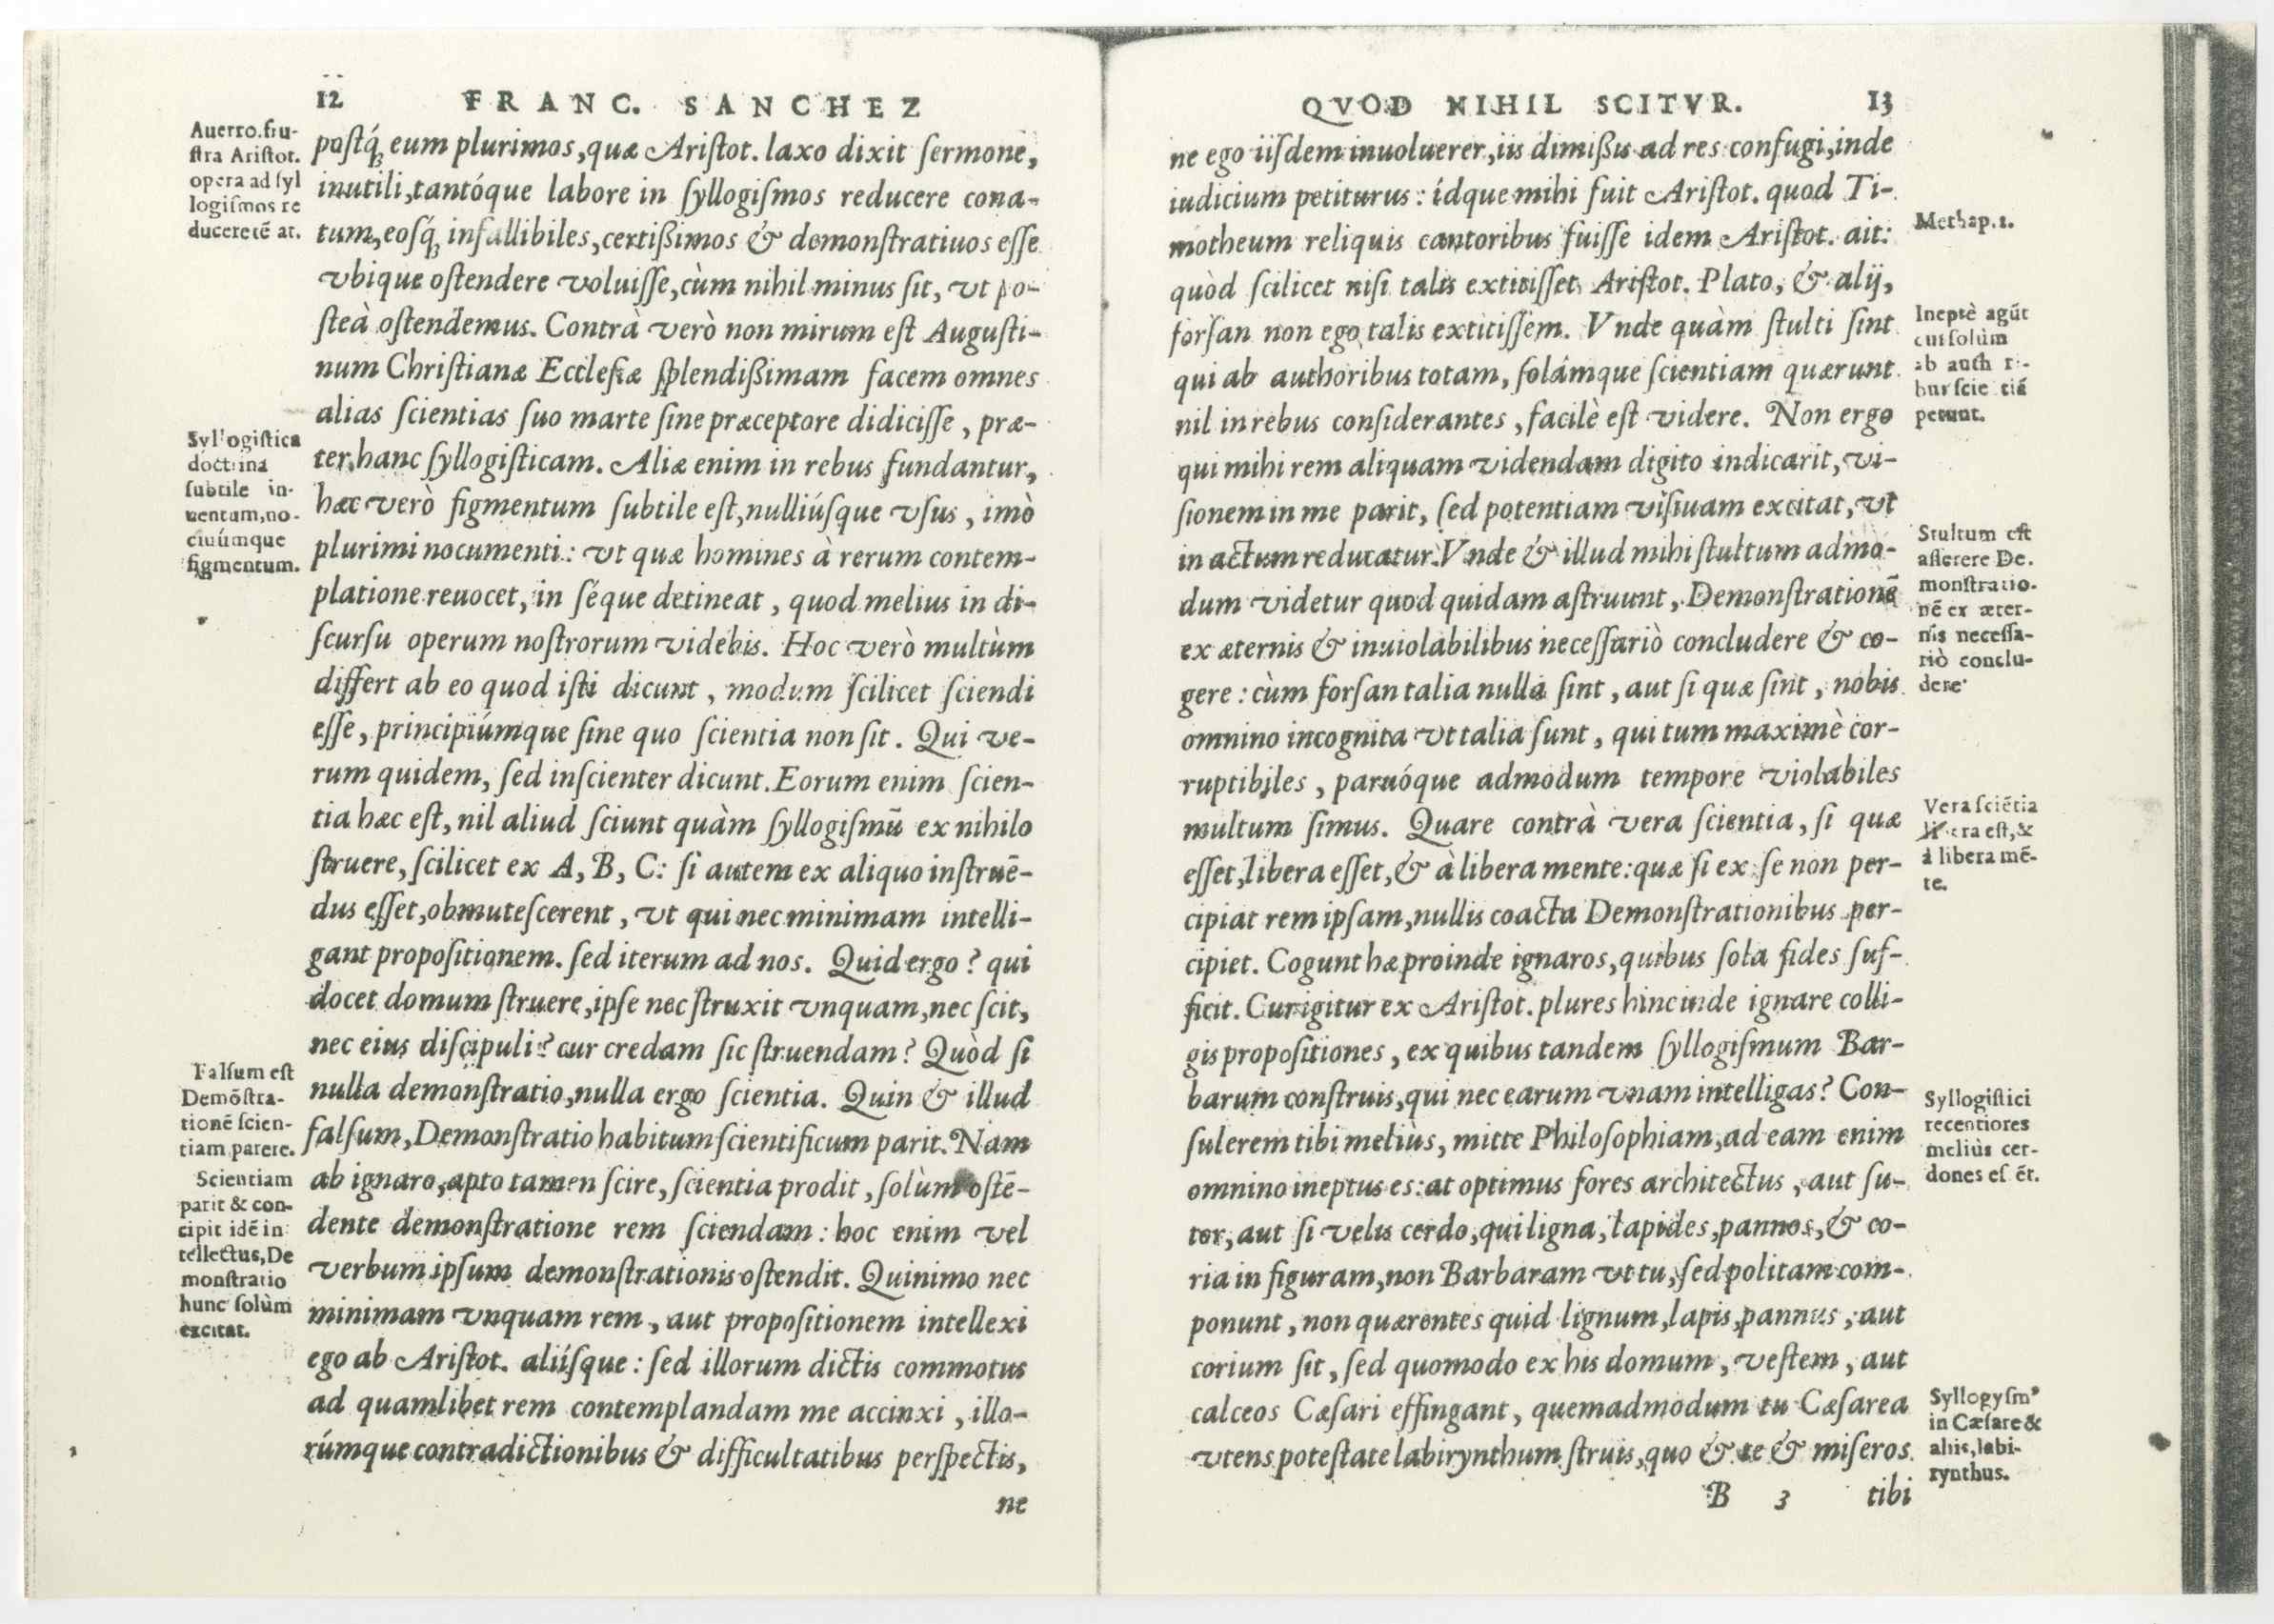 12 FRANC. SANCHEZ
Auerro. fru-
stra Aristot.
opera ad syl
logismos re
duceretē at.
postq́; eum plurimos, quæ Aristot. laxo dixit sermone,
inutili, tantóque labore in syllogismos reducere cona-
tum, eosq́; infallibiles, certißimos & demonstratiuos esse
vbique ostendere voluisse, cùm nihil minus sit, vt po-
steà ostendemus. Contrà verò non mirum est Augusti-
num Christianæ Ecclesiæ splendißimam facem omnes
alias scientias suo marte sine præceptore didicisse, præ-
ter hanc syllogisticam. Aliæ enim in rebus fundantur,
hæc verò figmentum subtile est, nulliúsque vsus, imò
plurimi nocumenti: vt quæ homines à rerum contem-
platione reuocet, in séque detineat, quod melius in di-
scursu operum nostrorum videbis. Hoc verò multùm
differt ab eo quod isti dicunt, modum scilicet sciendi
esse, principiúmque sine quo scientia non sit. Qui ve-
rum quidem, sed inscienter dicunt. Eorum enim scien-
tia hæc est, nil aliud sciunt quàm syllogismū ex nihilo
struere, scilicet ex A, B, C: si autem ex aliquo instruē-
dus esset, obmutescerent, vt qui nec minimam intelli-
gant propositionem. sed iterum ad nos. Quid ergo? qui
docet domum struere, ipse nec struxit vnquam, nec scit,
nec eius discipuli? cur credam sic struendam? Quòd si
nulla demonstratio, nulla ergo scientia. Quin & illud
falsum, Demonstratio habitum scientificum parit. Nam
ab ignaro, apto tamen scire, scientia prodit, solùm ostē-
dente demonstratione rem sciendam: hoc enim vel
verbum ipsum demonstrationis ostendit. Quinimo nec
minimam vnquam rem, aut propositionem intellexi
ego ab Aristot. aliísque: sed illorum dictis commotus
ad quamlibet rem contemplandam me accinxi, illo-
rúmque contradictionibus & difficultatibus perspectis,
ne
Syllogistica
doctrina
subtile in-
uentum, no-
ciuúmque
figmentum.
Falsum est
Demōstra-
tionē scien-
tiam parere.
Scientiam
parit & con-
cipit idē in
tellectus, De
monstratio
hunc solùm
excitat.
QVOD NIHIL SCITVR. 13
ne ego iisdem inuoluerer, iis dimißis ad res confugi, inde
iudicium petiturus: ídque mihi fuit Aristot. quod Ti-
motheum reliquis cantoribus fuisse idem Aristot. ait:
quòd scilicet nisi talis extitisset Aristot. Plato, & alij,
forsan non ego talis extitissem. Vnde quàm stulti sint
qui ab authoribus totam, solámque scientiam quærunt
nil in rebus considerantes, facilè est videre. Non ergo
qui mihi rem aliquam videndam digito indicarit, vi-
sionem in me parit, sed potentiam visiuam excitat, vt
in actum reducatur. Vnde & illud mihi stultum admo-
dum videtur quod quidam astruunt, Demonstrationē
ex æternis & inuiolabilibus necessariò concludere & co-
gere: cùm forsan talia nulla sint, aut si quæ sint, nobis
omnino incognita vt talia sunt, qui tum maximè cor-
ruptibiles, paruóque admodum tempore violabiles
multum simus. Quare contrà vera scientia, si quæ
esset, libera esset, & à libera mente: quæ si ex se non per-
cipiat rem ipsam, nullis coacta Demonstrationibus per-
cipiet. Cogunt hæ proinde ignaros, quibus sola fides suf-
ficit. Cur igitur ex Aristot. plures hinc inde ignare colli-
gis propositiones, ex quibus tandem syllogismum Bar-
barum construis, qui nec earum vnam intelligas? Con-
sulerem tibi meliùs, mitte Philosophiam, ad eam enim
omnino ineptus es: at optimus fores architectus, aut su-
tor, aut si velis cerdo, qui ligna, lapides, pannos, & co-
ria in figuram, non Barbaram vt tu, sed politam com-
ponunt, non quærentes quid lignum, lapis, pannus, aut
corium sit, sed quomodo ex his domum, vestem, aut
calceos Cæsari effingant, quemadmodum tu Cæsarea
vtens potestate labirynthum struis, quo & te & miseros
B 3 tibi
Methap. 2.
Ineptè agūt
cui solùm
ab auth ri-
bus scie tiā
petunt.
Stultum est
asserere De.
monstratio-
nē ex æter-
nis necessa-
riò conclu-
dere
Vera sciētia
era est, &
à libera mē-
te.
Syllogistici
recentiores
meliùs cer-
dones es ēt.
Syllogysmꝰ
in Cæsare &
aliis, labi-
rynthus.